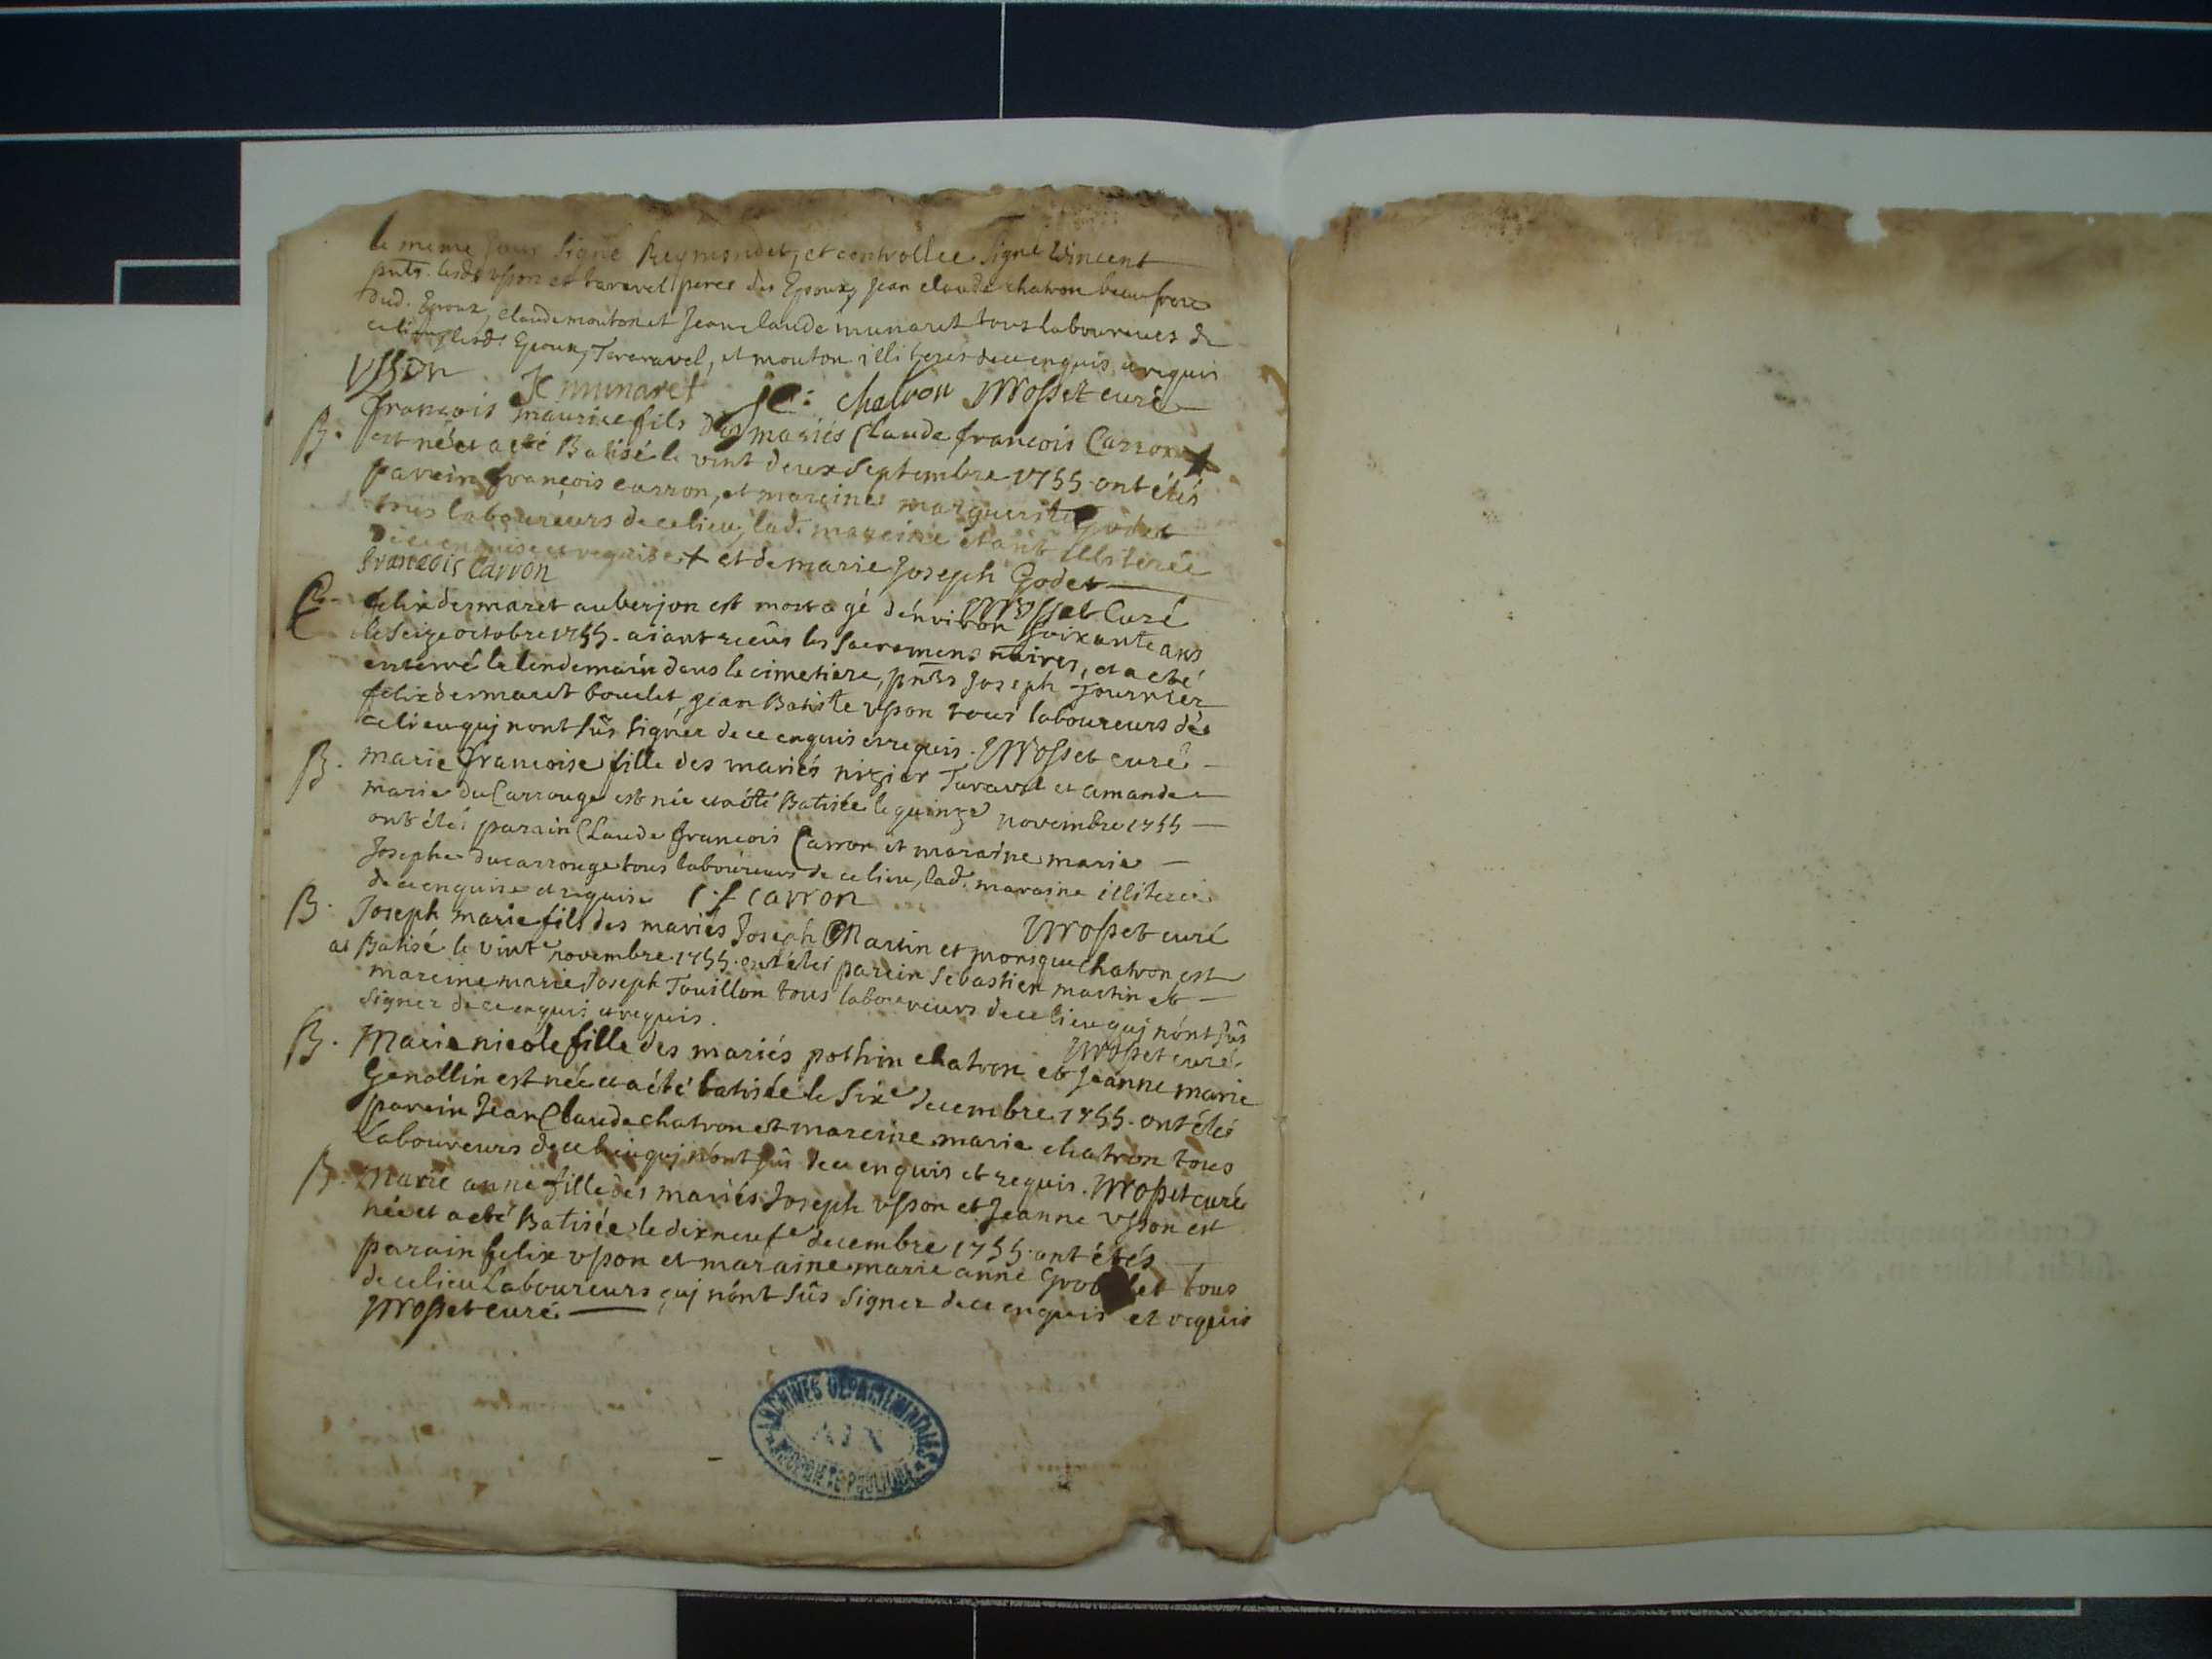 le meme jour Signé Reymondet, et controllee Signé Vincent
pnts. lesds vsson et taravel peres des Epoux, Jean claude chatron beaufrere
dud. Epoux, claude mouton et Jean claude munaret tous laboureurs de
ce lieu, lesds Epoux, Taravel, et mouton illiterés de ce enquis et requis
VSSON JC munaret JC: chatron Mosset curé
B. françois maurice fils des mariés Claude françois Carron +
est né et a eté Batisé le vint deux Septembre 1755 ont étés
parein françois carron, et mareine marguerite Godet
tous laboureurs de ce lieu, lad. mareine étant illiterée
de ce enquise et requise + et de marie Joseph Godet
francois carron Mosset Curé
felix desmaret auberjon est mort agé d'environ soixante ans
le Seize octobre 1755. aiant reçûs les Sacremens nàires, et a eté
enterré le lendemain dans le cimetiere, pnts Joseph Journier
felix desmaret bouclet, Jean Batiste vsson tous laboureurs de
ce lieu quj nont sûs signer de ce enquis et requis. Mosset curé
B. marie francoise fille des mariés nizier Taravel et amande
marie duCarrouge est née et a été Batisée le quinze novembre 1755
ont étés parain Claude francois Carron et maraine marie
Josephe ducarrouge tous laboureurs de ce lieu, lad. maraine illiterée
de ce enquise et requise C. f carron
Mosset curé
B. Joseph marie fils des mariés Joseph Martin et chatron est
Batisé le vint novembre 1755. ont étés parein Sebastien martin et
mareine marie Joseph Touillon tous laboureurs de ce lieu quj nont sûs
Signer de ce enquis et requis. Mosset curé
B. Marie nicole fille des mariés pothin chatron et Jeanne marie
Genollin est née et a été batisée le Sixe decembre 1755. ont étés
parein Jean Claude chatron et mareine marie chatron tous
Laboureurs de ce lieu quj n'ont sûs de ce enquis et requis. Mosset curé
B. Marie anne fille des mariés Joseph vsson et Jeanne vsson est
née et a eté Batisée le dix neufe decembre 1755. ont étés
parain felix vsson et maraine marie anne tous
de ce lieu Laboureurs quj n'ont sûs Signer de ce enquis et requis
Mosset curé
ARCHIVES DEPARTEMENTALES
AIN
PROPRIETE PUBLIQUE